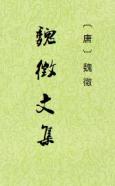 〔唐〕魏徵
魏徵文集